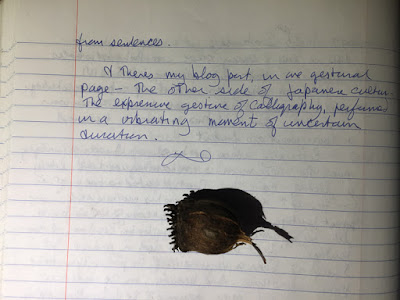 from sentences.
& Theres my blog post, in one gestural
page – The other side of Japanese culture.
The expressive gesture of Calligraphy,
in a vibrating moment of uncertain
duration.